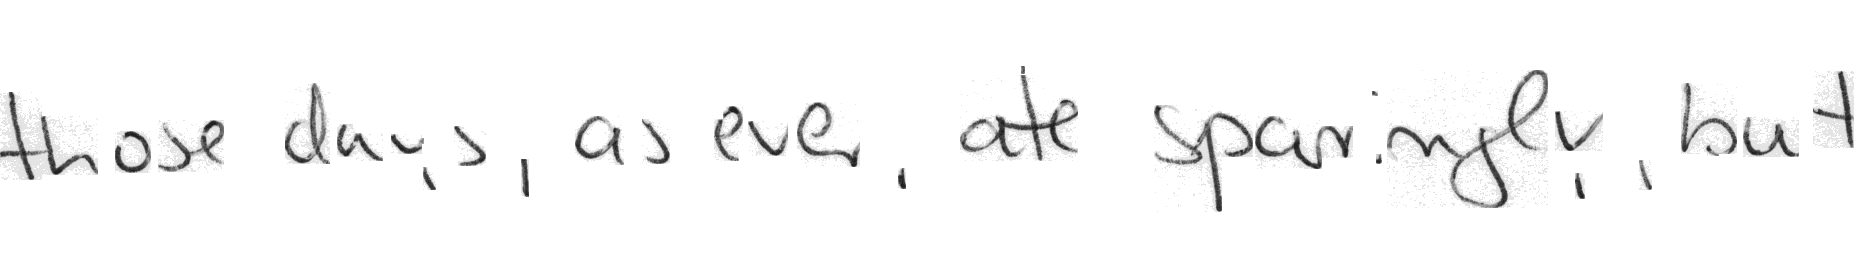 those days, as ever, ate sparingly, but